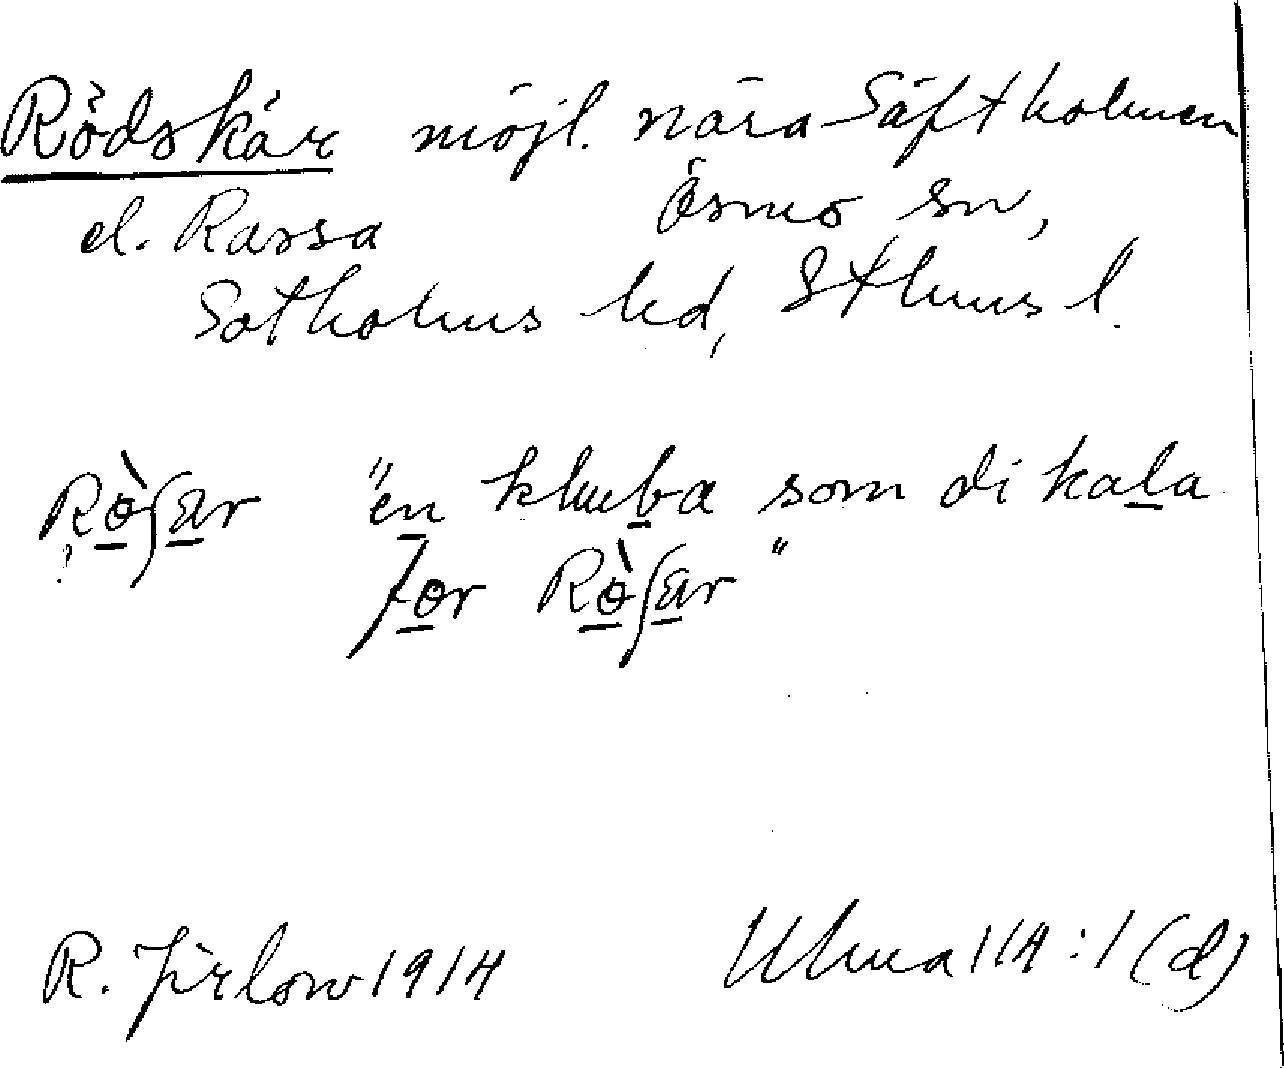 Rödskär möjl. nära Säftholmen
el. Rassa Ösmo sn,
Sotholms hd, Sthms l.
Rö̀ʃær "en klub̲a som di kal̲a
för Rö̀ʃær"
R. Jirlow 1914 Ulma 114:1(d)